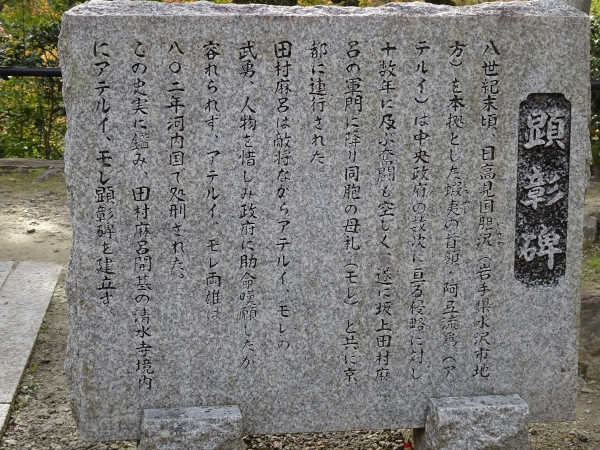 顕彰碑
八世紀末頃、日高見国胆沢（岩手県水沢市地
方）を本拠とした蝦夷の首領・阿弖流為（ア
テルイ）は中央政府の数次に亘る侵略に対し
十数年に及ぶ奮闘も空しく、遂に坂上田村麻
呂の軍門に降り同胞の母礼（モレ）と共に京
都に連行された。
田村麻呂は敵将ながらアテルイ、モレの
武勇、人物を惜しみ政府に助命嘆願したが
容れられず、アテルイ、モレ両雄は
八〇二年河内国で処刑された。
この史実に鑑み、田村麻呂開基の清水寺境内
にアテルイ、モレ顕彰碑を建立す